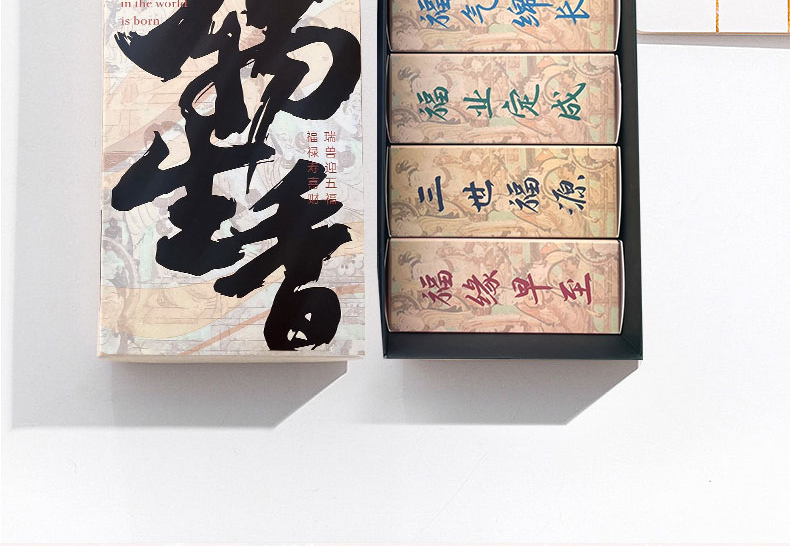 in the world
is born
物生香
瑞兽迎五福
福禄寿喜财
福气绵长
福业定成
三世福源
福缘早至